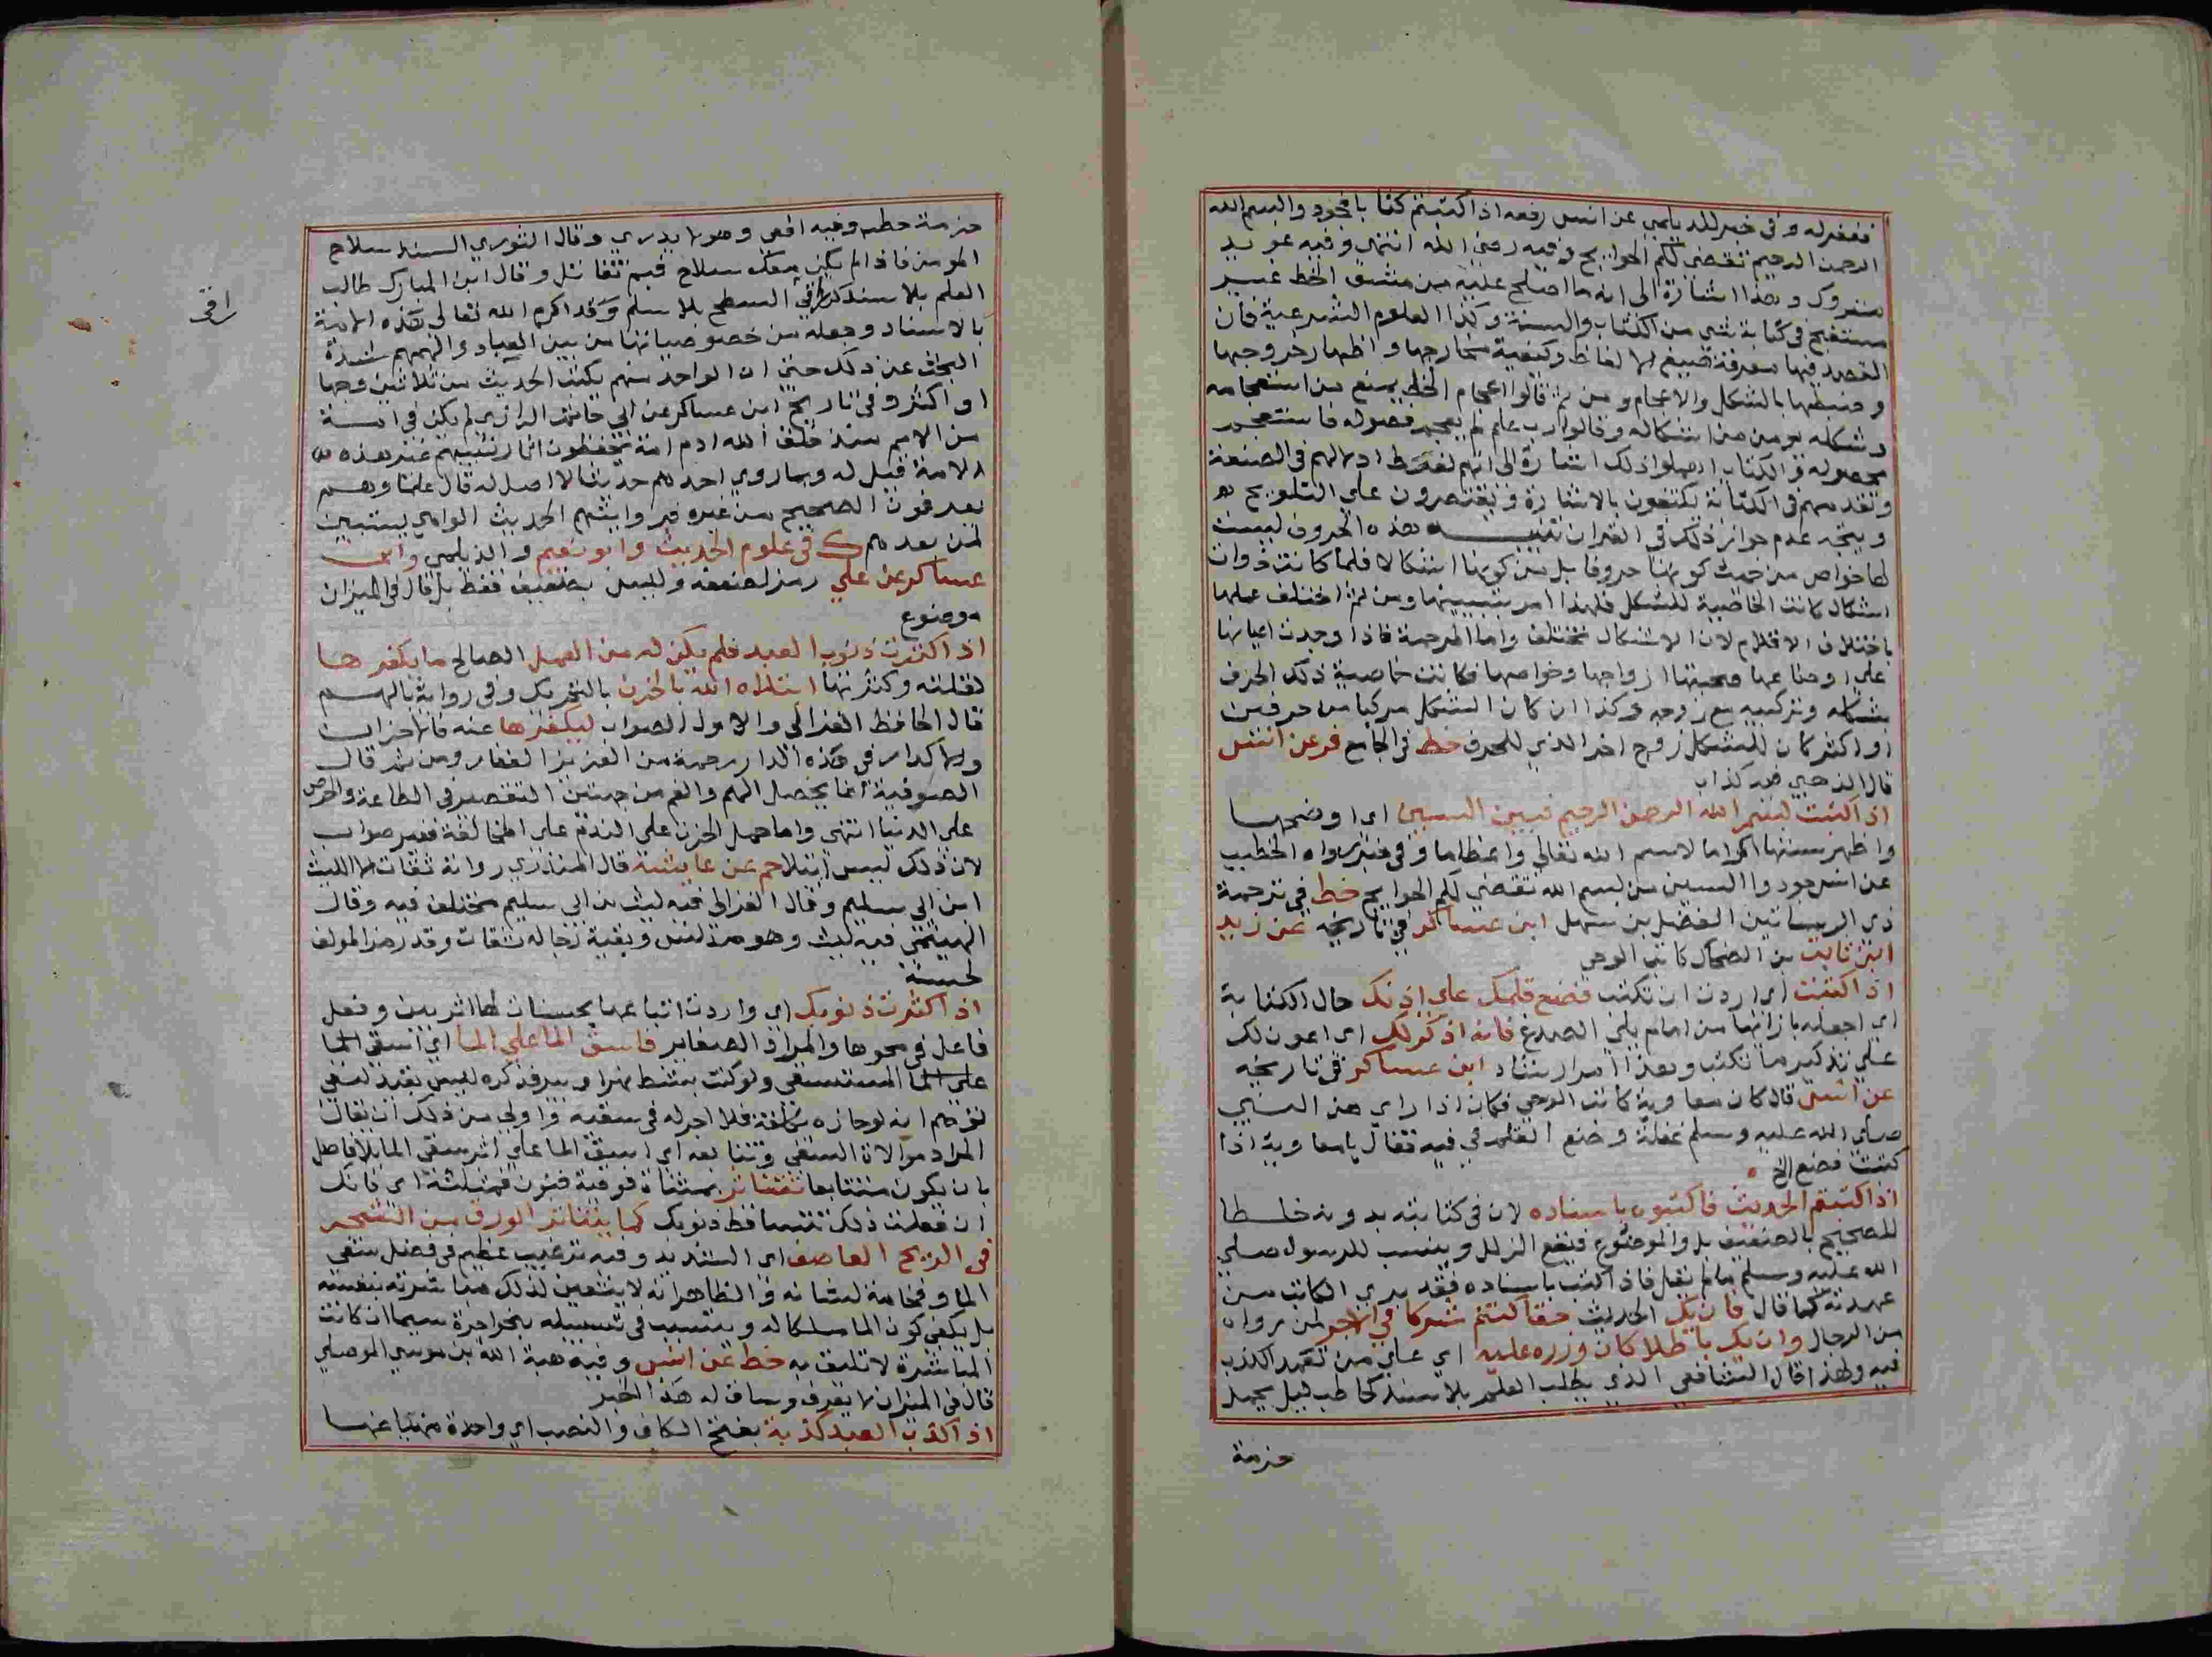 فغفر له وفي خبر للديلمي عن انس رفعه اذا كتبتم كتابا فجودوا بسم الله
الرحمن الرحيم تقضى لكم الحوايج وفيه رضى الله انتهى وفيه
متروك وهذا اشارة الى ان ما اصلح عليه من مشق الخط غير
مستقبح في كتابة شي من الكتاب والسنة وكذا العلوم الشرعية فان
القصد فيها معرفة صيغ الالفاظ وكيفية مخارجها واظهار حروجها
وضبطها بالشكل والاعجام ومن ثم قالوا اعجام الخط يمنع من استعجامه
وشكله يومن من اشكاله وقالوا رب علم لم يعجم فصوله فاستعجم
محصوله والكتاب اهملوا ذلك اشارة الى انهم لفرط ادلالهم في الصنعة
وتقدمهم في الكتابة يكتفون بالاشارة ويقتصرون على التلويح
ويتجه عدم جواز ذلك في القران تنبيه هذه الحروف ليست
لها خواص من حيث كونها حروفا بل من كونها اشكالا فلما كانت ذوات
اشكال كانت الخاصية للشكل فلهذا امر بتبيينها ومن ثم اختلف عملها
باختلاف الاقلام لان الاشكال تختلف واما المرقمة فاذا وجدت اعيانها
على اوضاعها صحبتها ازواجها وخواصها فكانت خاصية ذلك الحرف
بشكله وتركيبه مع روحه وكذا ان كان الشكل مركبا من حرفين
او اكثر كان للشكل روح اخر الذي للحرف خط في الجامع فر عن انس
قال الذهبي فيه كذاب
اذا كتبت بسم الله الرحمن الرحيم فبين السين اي اوضحها
واظهر سنتها اكراما لاسم الله تعالى واعظاما وفي خبر رواه الخطيب
عن انس جودوا السين من بسم الله تقضى لكم الحوايج خط في ترجمة
ذي الرياستين الفضل بن سهل ابن عساكر في تاريخه عن زيد
ابن ثابت بن الضحاك كاتب الوحي
اذا كتبت اي اردت ان تكتب فضع قلمك على اذنك حال الكتابة
اي اجعله بازائها من امام يلي الصدغ فانه اذكر لك اي اعون لك
على تذكير ما تكتب وهذا امر ارشاد ابن عساكر في تاريخه
عن انس قال كان معاوية كاتب الوحي فكان اذا راى من النبي
صلى الله عليه وسلم غفلة وضع القلم في فيه فقال يامعاوية اذا
كتبت فضع الخ
اذا كتبتم الحديث فاكتبوه باسناده لان في كتابته بدونه خلطا
للصحيح بالضعيف بل والموضوع فيقع الزلل وينسب للرسول صلى
الله عليه وسلم مالم يقل فاذا كتب باسناده فقد بري الكاتب من
عهدته كما قال فان يك الحديث حقا كنتم شركا في الاجر لمن رواه
من الرجال وان يك باطلا كان وزره عليه اي على من تعمد الكذب
فيه ولهذا قال الشافعي الذي يطلب العلم بلا سند كحاطب ليل يحمل
حزمة
حزمة حطب وفيه افعى وهو لا يدري وقال الثوري السند سلاح
المومن فاذا لم يكن معك سلاح فبم تقاتل وقال ابن المبارك طالب
العلم بلا سند كراقي السطح بلا سلم وقد اكرم الله تعالى هذه الامة
بالاسناد وجعله من خصوصياتها من بين العباد والهمهم شدة
البحث عن ذلك حتى ان الواحد منهم يكتب الحديث من ثلاثين وجها
او اكثر وفي تاريخ ابن عساكر عن ابي حاتم الرازي لم يكن في امة
من الامم منذ خلق الله ادم امة يحفظون اثار نبيهم غير هذه
الامة قيل له وبما روى احدهم حديثا لا اصل له قال علماوهم
يعرفون الصحيح من غيره فروايتهم الحديث الواهي ليتبين
لمن بعدهم ك في علوم الحديث وابو نعيم والديلمي وابن
عساكر عن علي رمز لضعفه وليس بضعيف فقط بل قال في الميزان
موضوع
اذا كثرت ذنوب العبد فلم يكن له من العمل الصالح ما يكفرها
لقلته وكثرتها ابتلاه الله بالحزن بالتحريك وفي رواية بالهم
قال الحافظ العراقي والاول الصواب ليكفرها عنه فالاحزان
والاكدار في هذه الدار رحمة من العزيز الغفار ومن ثم قال
الصوفية انما يحصل الهم والغم من جهتين التقصير في الطاعة والحرص
على الدنيا انتهى واما حمل الحزن على الندم على المخالفة فغير صواب
لان ذلك ليس ابتلا حم عن عايشة قال المنذري رواته ثقات الا الليث
ابن ابي سليم وقال العراقي فيه ليث بن ابي سليم مختلف فيه وقال
الهيثمي فيه ليث وهو مدلس وبقية رجاله ثقات وقد رمز المولف
لحسنه
اذا كثرت ذنوبك اي واردت اتباعها بحسنات لها اثر بين وفعل
فاعل في محوها والمراد الصغاير فاسق الما على الما اي اسق الما
على الما المستسقى ولو كنت بشط نهر
توهم انه لو جازه بكلفة فلا اجر له في سقيه واولى من ذلك ان يقال
المراد موالاة السقي وتتابعه اي اسق الما على اثر سقى الما بلا فاصل
بان يكون متتابعا تتناثر بمثناة فوقية فنون فمثلثة اي فانك
ان فعلت ذلك تتساقط ذنوبك كما يتناثر الورق من الشجر
في الريح العاصف اي الشديد وفيه ترغيب عظيم في فضل سقي
الما وفخامة لشانه والظاهر انه لا يتعين لذلك مباشرته بنفسه
بل يكفى كون الما ملكا له ويتسبب في تسبيله بنحو اجرة سيما ان كانت
المباشرة لا تليق به خط عن انس وفيه هبة الله بن موسى الموصلي
قال في الميزان لا يعرف وساق له هذا الخبر
اذا كذب العبد كذبة بفتح الكاف والنصب اي واحدة منهيا عنها